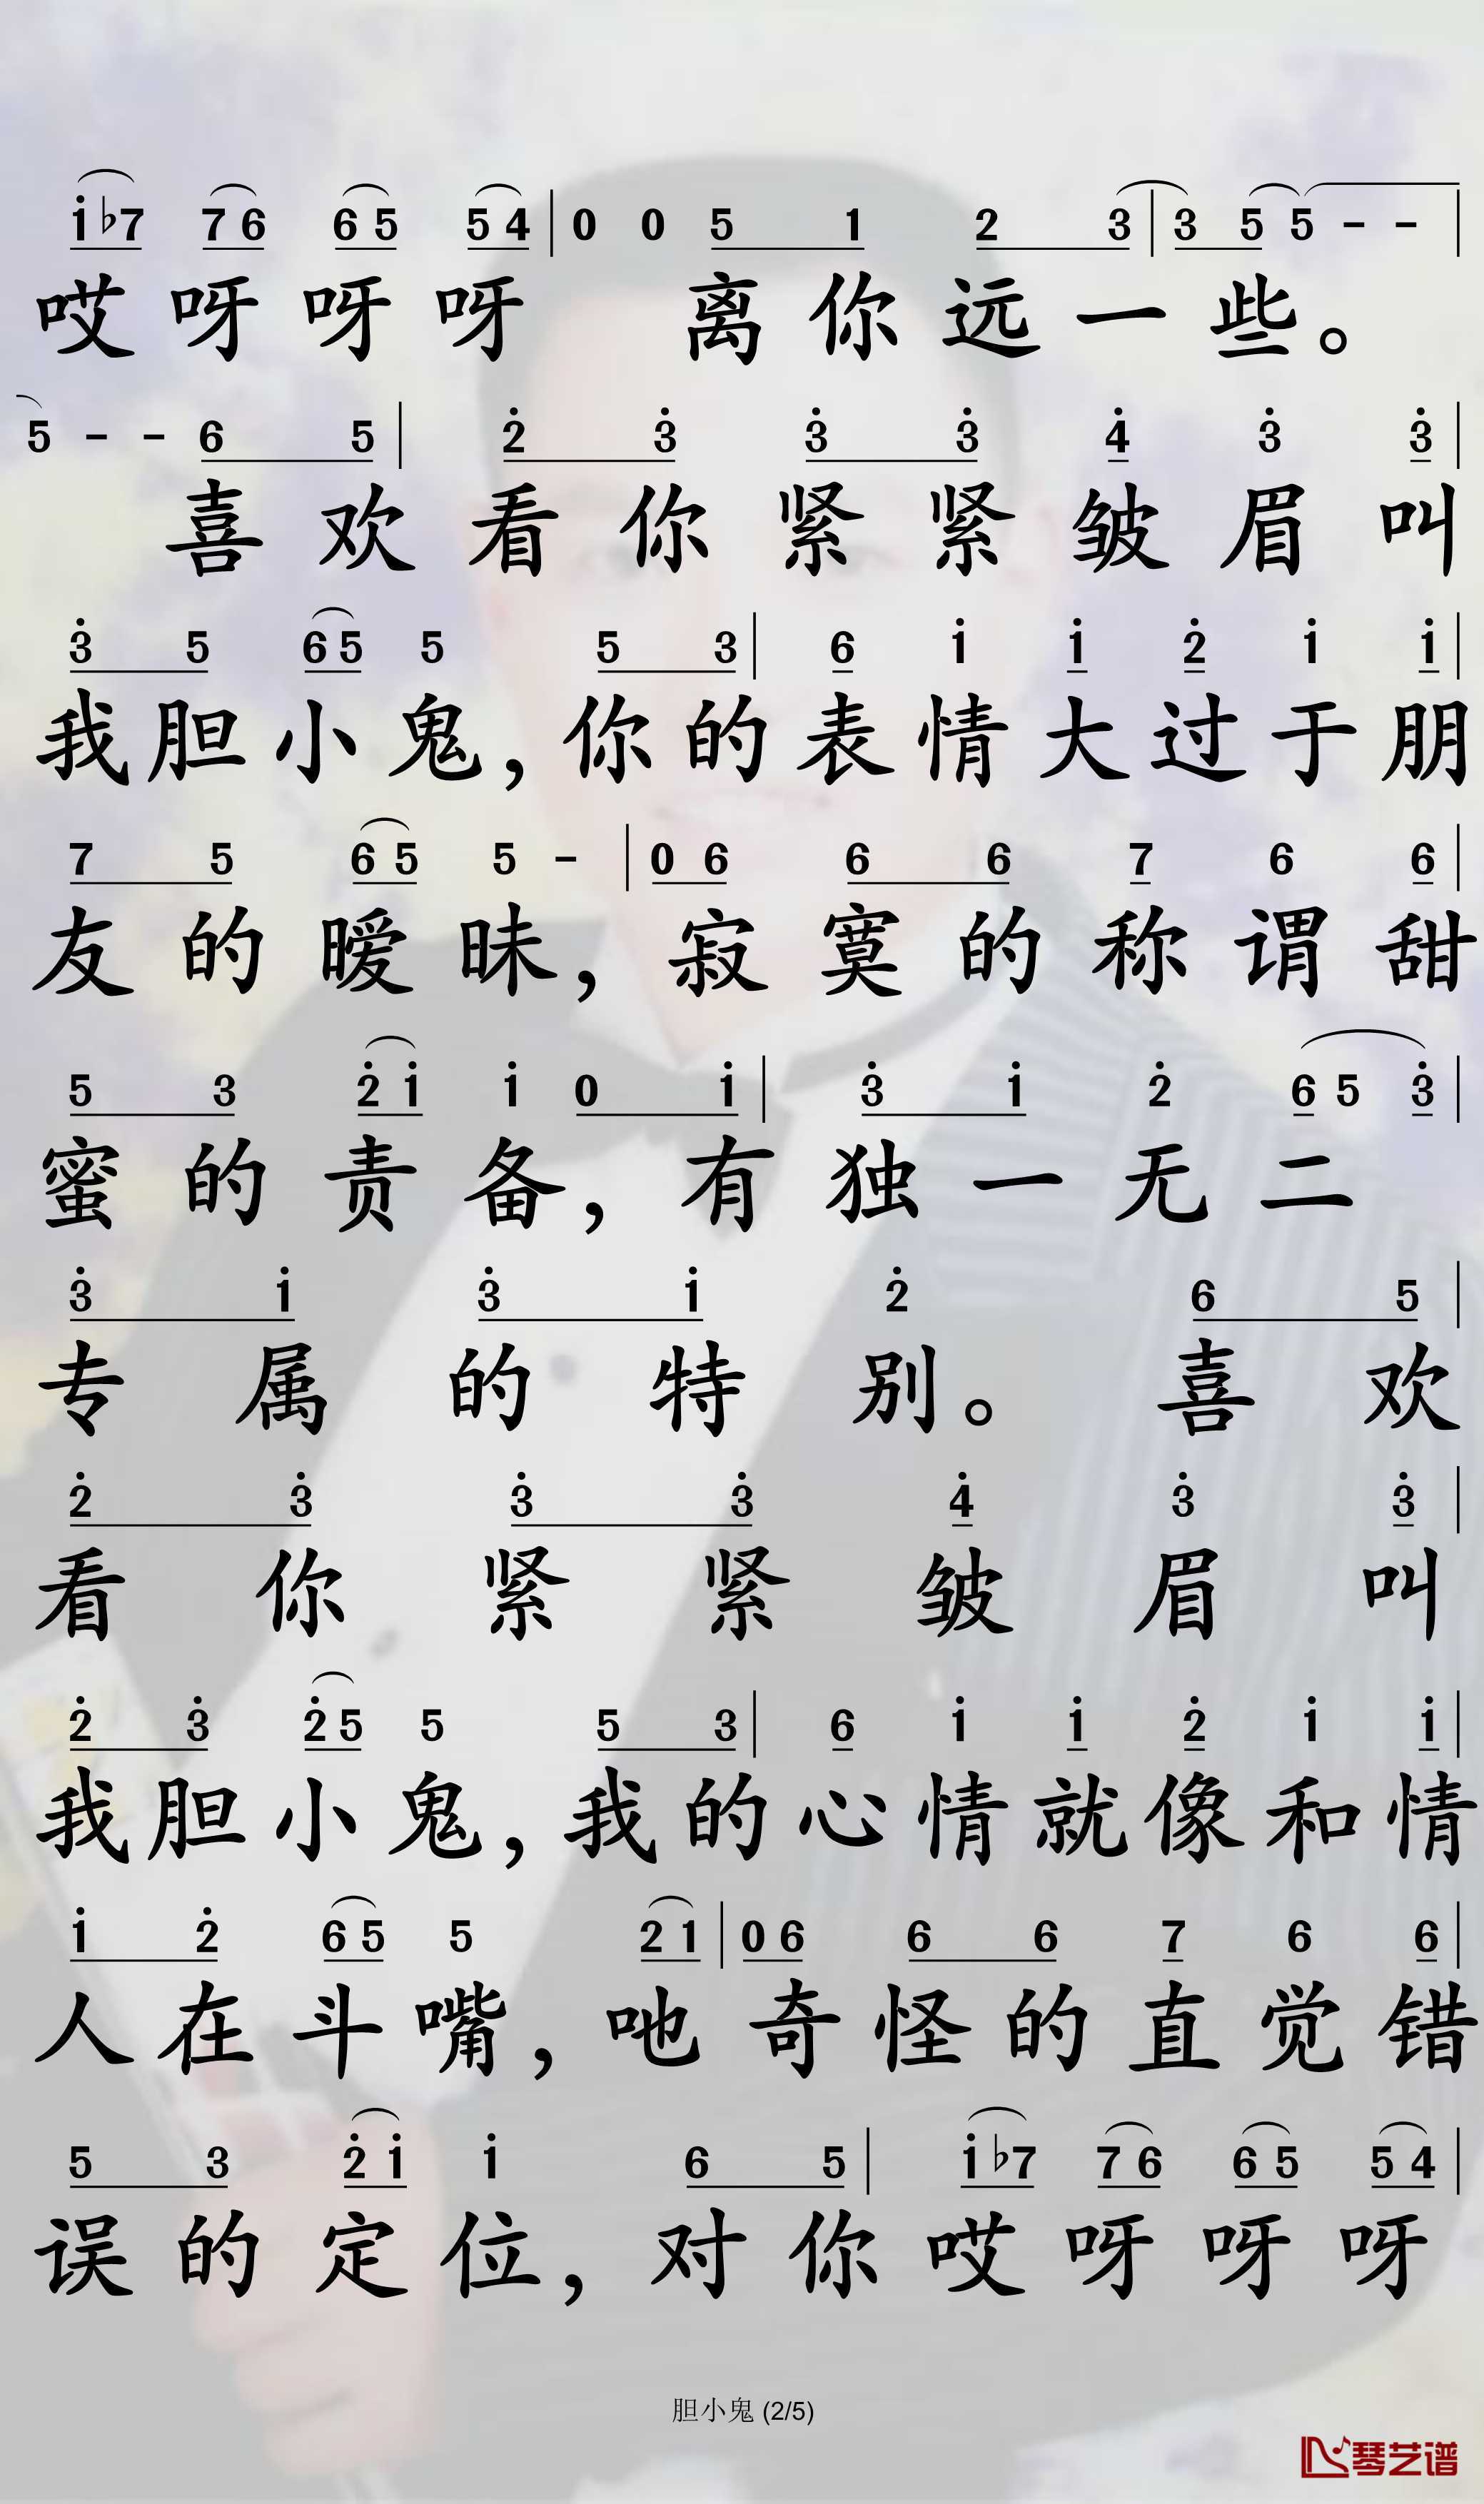 1̇ ♭7 7 6 6 5 5 4 | 0 0 5 1 2 3 | 3 5 5 - - |
哎呀呀呀 离你远一些。
5 - - 6 5 | 2̇ 3̇ 3̇ 3̇ 4̇ 3̇ 3̇ |
喜欢看你紧紧皱眉叫
3̇ 5 6 5 5 5 3 | 6 1̇ 1̇ 2̇ 1̇ 1̇ |
我胆小鬼，你的表情大过于朋
7 5 6 5 5 - | 0 6 6 6 7 6 6 |
友的暧昧，寂寞的称谓甜
5 3 2̇ 1̇ 1̇ 0 1̇ | 3̇ 1̇ 2̇ 6 5 3̇ |
蜜的责备，有独一无二
3̇ 1̇ 3̇ 1̇ 2̇ 6 5 |
专属的特别。喜欢
2̇ 3̇ 3̇ 3̇ 4̇ 3̇ 3̇ |
看你紧紧皱眉叫
2̇ 3̇ 2̇ 5 5 5 3 | 6 1̇ 1̇ 2̇ 1̇ 1̇ |
我胆小鬼，我的心情就像和情
1̇ 2̇ 6 5 5 2 1 | 0 6 6 6 7 6 6 |
人在斗嘴，吔奇怪的直觉错
5 3 2̇ 1̇ 1̇ 6 5 | 1̇ ♭7 7 6 6 5 5 4 |
误的定位，对你哎呀呀呀
胆小鬼 (2/5)
琴艺谱